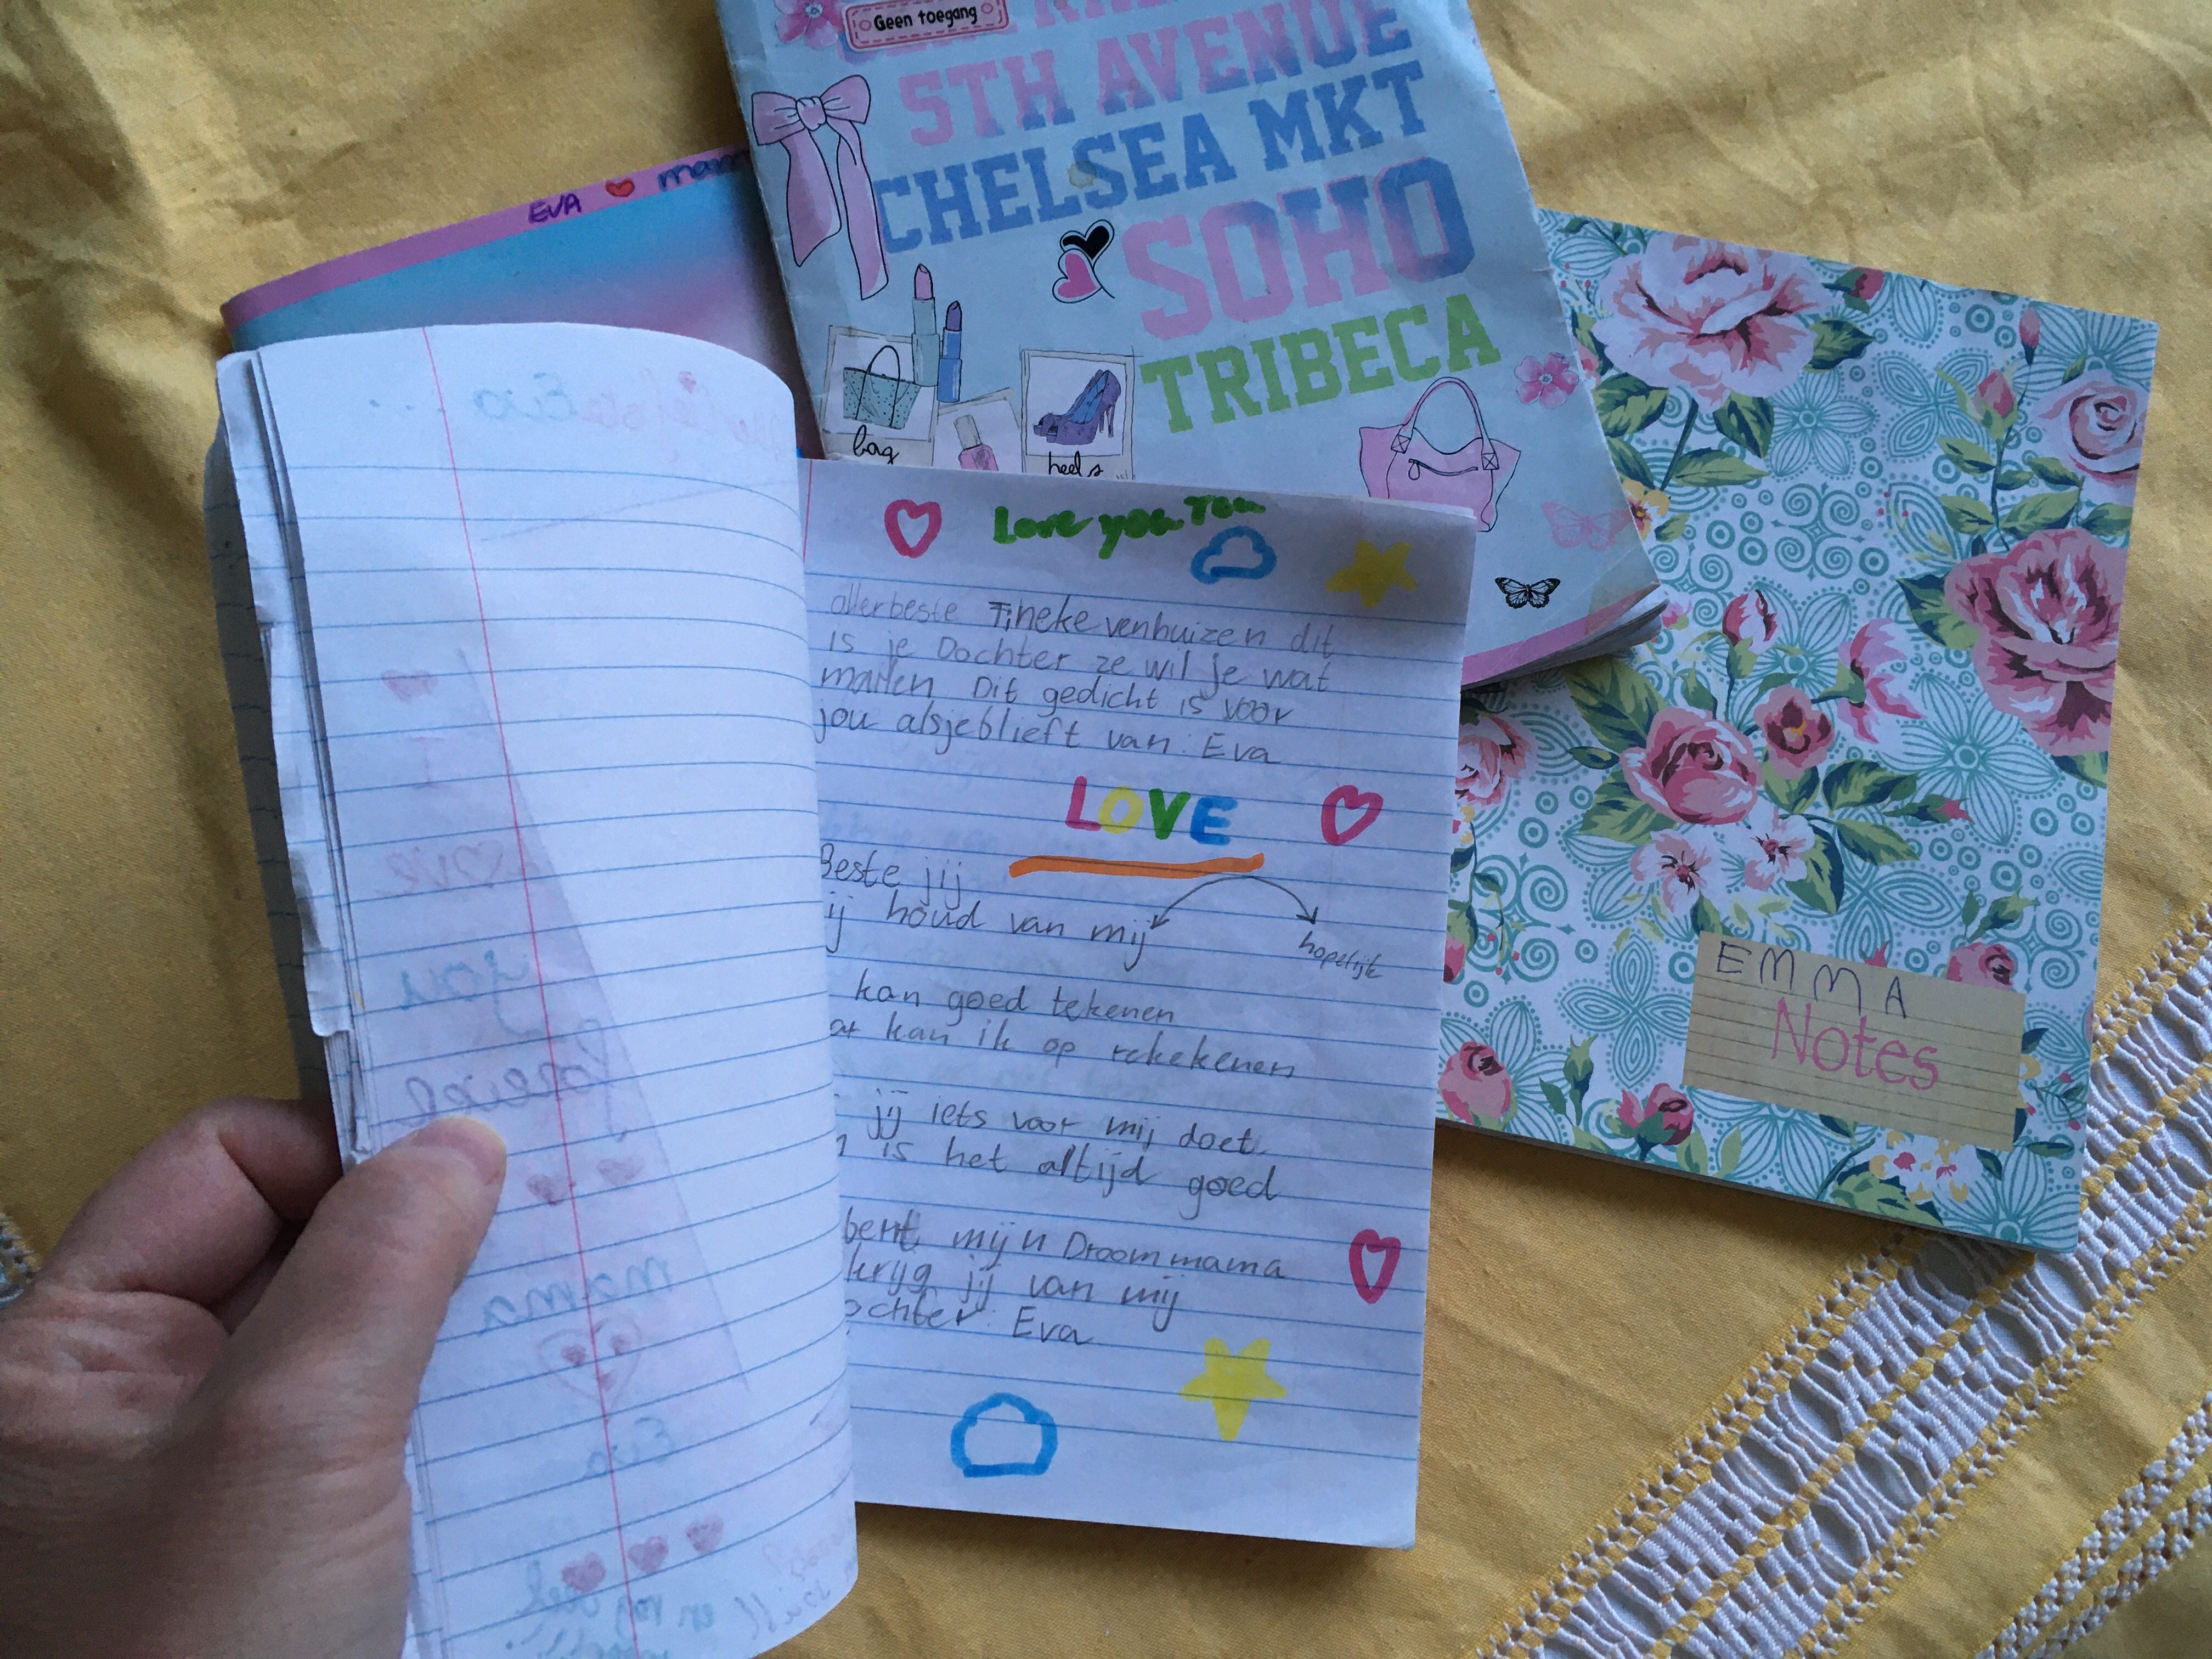 Geen toegang
5TH AVENUE
CHELSEA MKT
SOHO
TRIBECA
bag
heels
EVA
EMMA
Notes
Love you
allerbeste Tineke venhuizen dit
is je Dochter ze wil je wat
mailen Dit gedicht is voor
jou alsjeblieft van: Eva
LOVE
Beste jij
ij houd van mij
hopelijk
kan goed tekenen
ar kan ik op rekekenen
jij iets voor mij doet
n is het altijd goed
bent mijn Droommama
krijg jij van mij
ochter: Eva
Eva
I
love
you
forever
mama
Eva